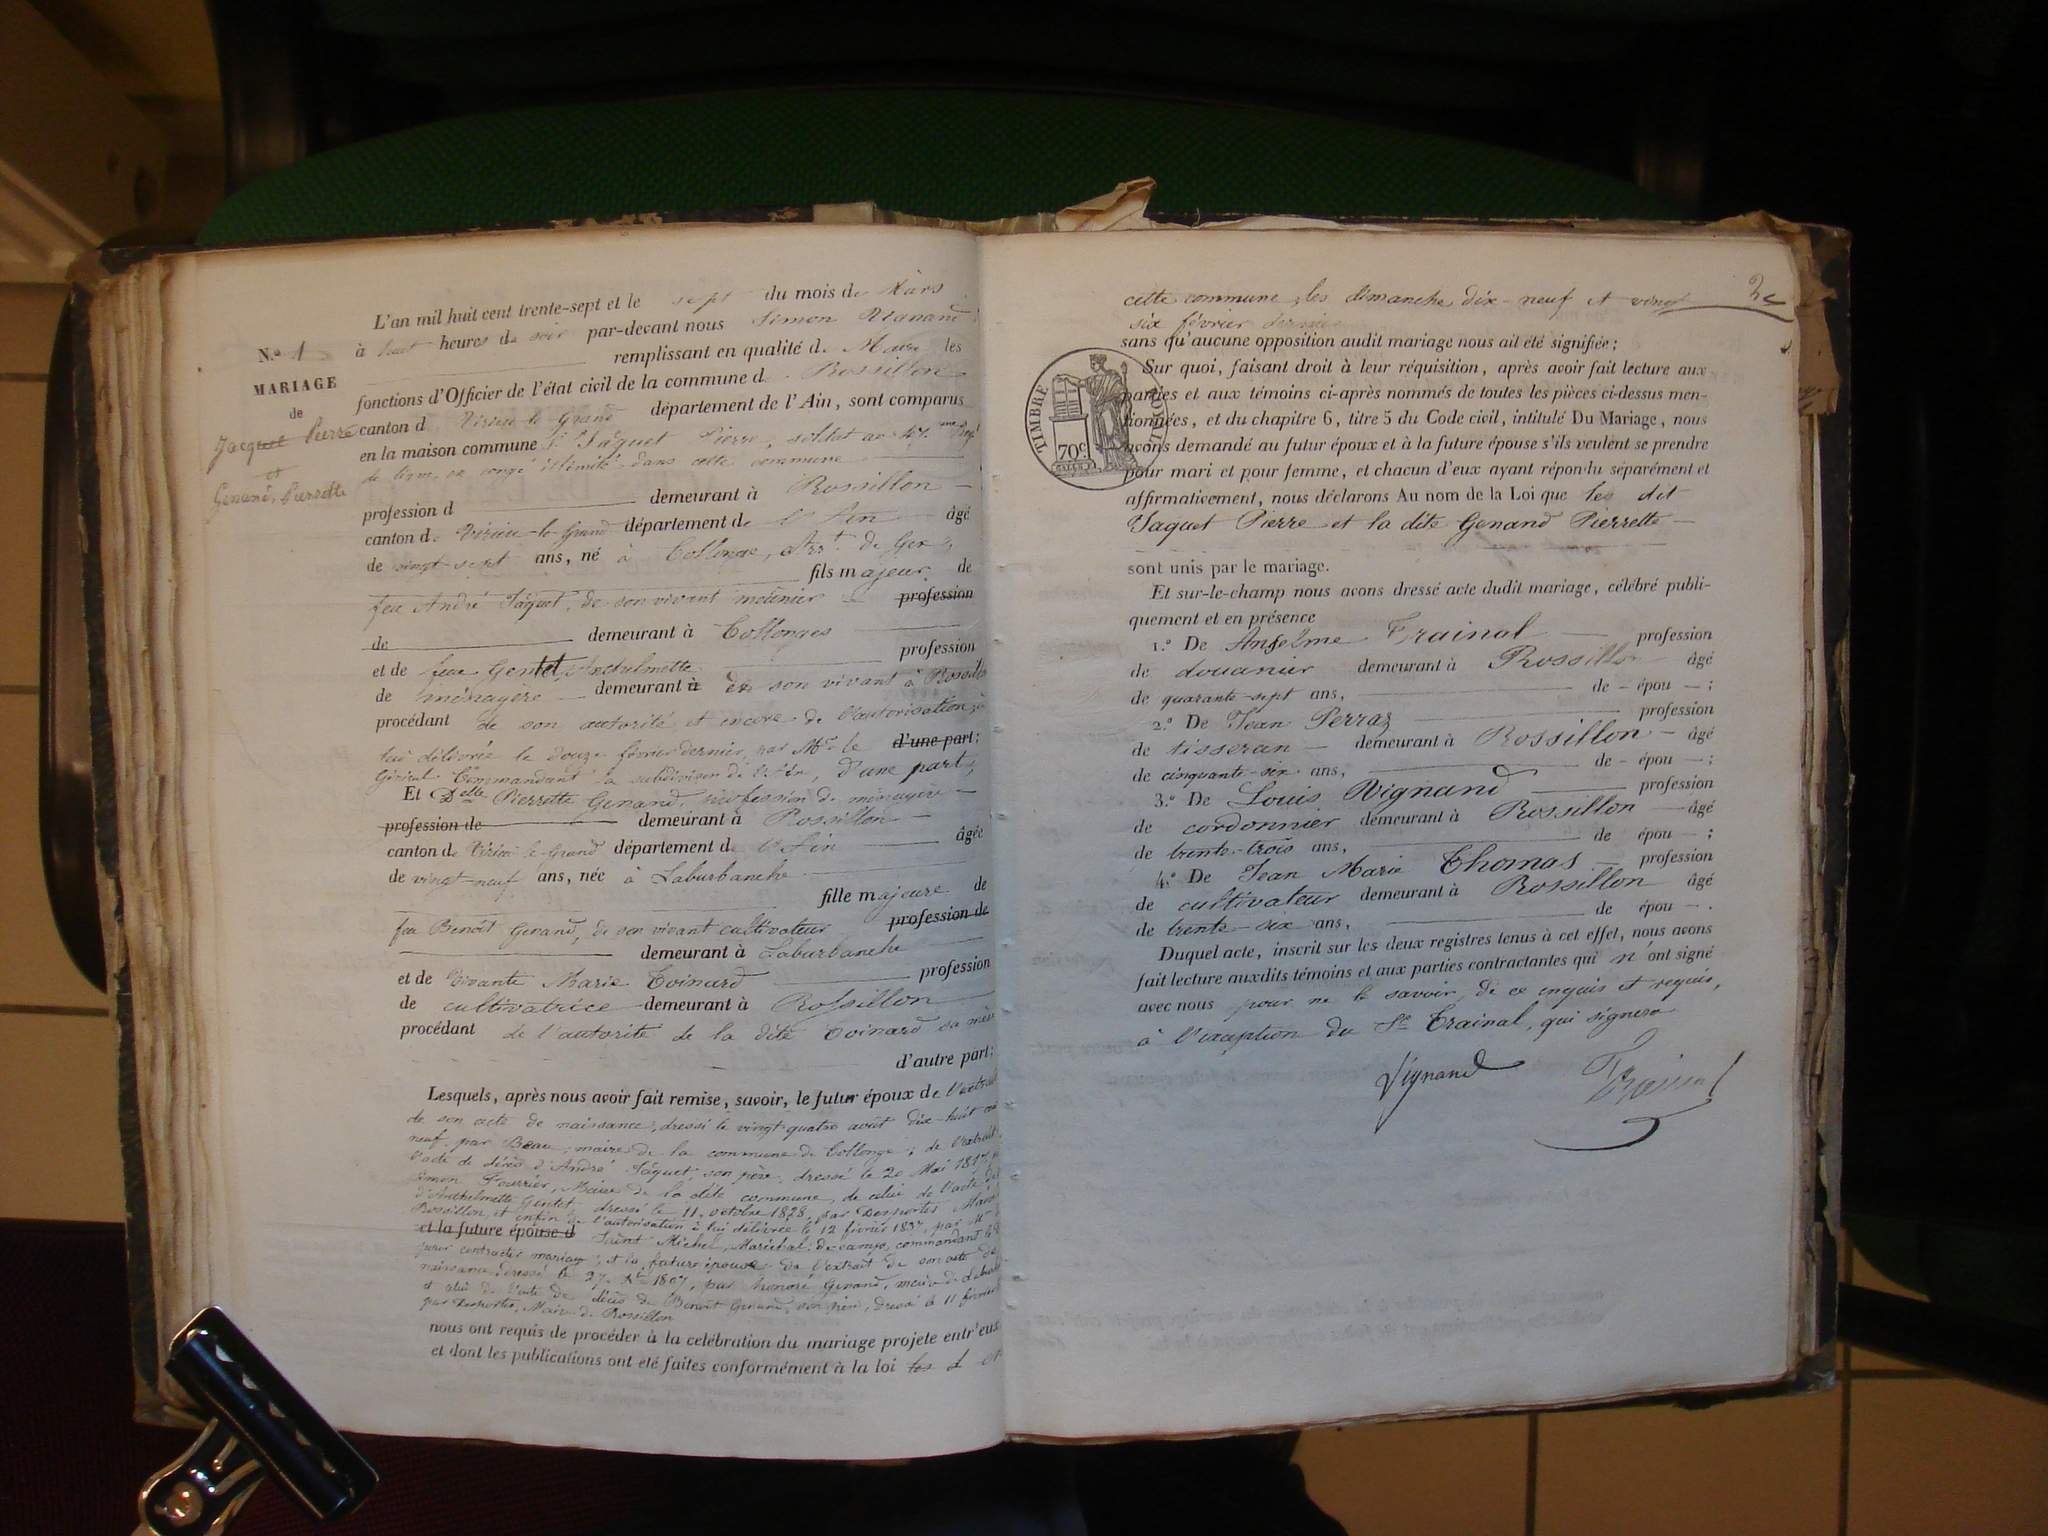 L'an mil huit cent trente-sept et le sept du mois de Mars
N.º 1 à huit heures du soir par-devant nous Simon Vignand
remplissant en qualité de Maire les
MARIAGE
fonctions d'Officier de l'état civil de la commune d Rossillon
de
canton d Virieu-le-Grand département de l'Ain, sont comparus
Jacquet Pierre
et
Genand, Pierrette
en la maison commune Sr Jaquet Pierre, soldat au 47.me Regt
de ligne, en congé illimité dans cette commune
profession d demeurant à Rossillon
canton de Virieu-le-Grand département de l'Ain âgé
de vingt-sept ans, né à Collonge, Arrt. de Gex,
fils majeur de
feu André Jâquet, de son vivant meûnier profession
de demeurant à Collonges
et de feue Gentet, Anthelmette profession
de ménagère demeurant à de son vivant à Rossillon
procédant de son autorité et encore de l'autorisation à
lui délivrée le douze février dernier, par Mr le d'une part;
Général Commandant la subdivision de l'Ain, d'une part;
Et Delle Pierrette Genand, profession de ménagère
profession de demeurant à Rossillon
canton de Virieu-le-Grand département de l'Ain âgée
de vingt-neuf ans, née à Laburbanche
fille majeure de
feu Benoît Genand, de son vivant cultivateur profession de
demeurant à Laburbanche
et de vivante Marie Toinard profession
de cultivatrice demeurant à Rossillon
procédant de l'autorité de la dite Toinard sa mère
d'autre part;
Lesquels, après nous avoir fait remise, savoir, le futur époux de l'extrait
de son acte de naissance, dressé le vingt-quatre août dix-huit cent
neuf, par Beau, maire de la commune de Collonge; de l'extrait de
l'acte de décès d'André Jâquet, son père, dressé le 20 Mai 1817, par
Simon Fourrier, Maire de la dite commune, de celui de l'acte de
d'Anthelmette Gentet, dressé le 11 octobre 1828, par Desportes Maire
Rossillon, et enfin de l'autorisation à lui délivrée le 12 février 1837, par Mr
et la future épouse d Saint Michel, Maréchal de camp, commandant
pour contracter mariage; et la future épouse de l'extrait de son acte de
naissance, dressé le 27 1807, par honoré Genand, maire de
et celui de l'acte de décès de Benoît Genand, son père, dressé le 11 février
par Desportes, Maire de Rossillon
nous ont requis de procéder à la célébration du mariage projeté entr'eux
et dont les publications ont été faites conformément à la loi
2e
cette commune, les dimanche dix-neuf et vingt
six février dernier
sans qu'aucune opposition audit mariage nous ait été signifiée;
TIMBRE ROYAL
70c.
Sur quoi, faisant droit à leur réquisition, après avoir fait lecture aux
parties et aux témoins ci-après nommés de toutes les pièces ci-dessus men-
tionnées, et du chapitre 6, titre 5 du Code civil, intitulé Du Mariage, nous
avons demandé au futur époux et à la future épouse s'ils veulent se prendre
pour mari et pour femme, et chacun d'eux ayant répondu séparément et
affirmativement, nous déclarons Au nom de la Loi que les dit
Jaquet Pierre et la dite Genand Pierrette
sont unis par le mariage.
Et sur-le-champ nous avons dressé acte dudit mariage, célébré publi-
quement et en présence
1.º De Anselme Trainal profession
de douanier demeurant à Rossillon âgé
de quarante-sept ans, de - épou - ;
2.º De Jean Perraz profession
de tisseran demeurant à Rossillon âgé
de cinquante-six ans, de - épou - ;
3.º De Louis Vignand profession
de cordonnier demeurant à Rossillon âgé
de trente-trois ans, de épou - ;
4.º De Jean Marie Thomas profession
de cultivateur demeurant à Rossillon âgé
de trente-six ans, de épou - .
Duquel acte, inscrit sur les deux registres tenus à cet effet, nous avons
fait lecture auxdits témoins et aux parties contractantes qui n'ont signé
avec nous pour ne le savoir, de ce enquis et requis,
à l'exception du Sr Trainal, qui signera
Vignand Trainal